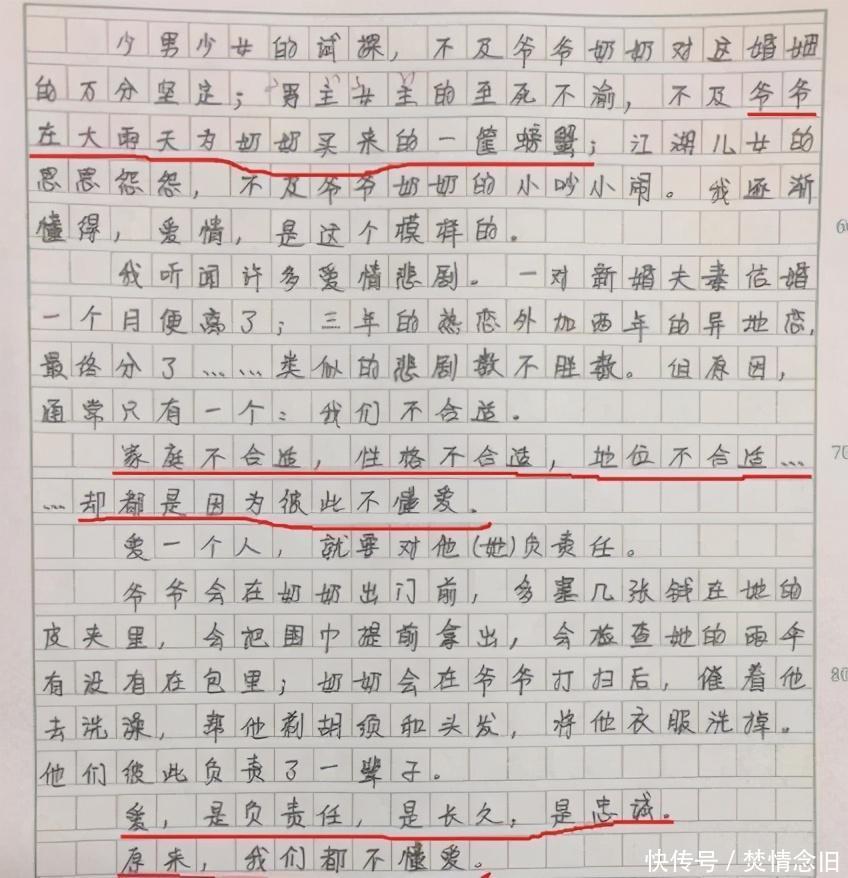 少男少女的试探，不及爷爷奶奶对这婚姻
的万分坚定；男主女主的至死不渝，不及爷爷
在大雨天为奶奶买来的一筐螃蟹；江湖儿女的
恩恩怨怨，不及爷爷奶奶的小吵小闹。我逐渐
懂得，爱情，是这个模样的。
我听闻许多爱情悲剧。一对新婚夫妻结婚
一个月便离了；三年的热恋外加两年的异地恋，
最终分了……类似的悲剧数不胜数。但原因，
通常只有一个：我们不合适。
家庭不合适，性格不合适，地位不合适…
…却都是因为彼此不懂爱。
爱一个人，就要对他(她)负责任。
爷爷会在奶奶出门前，多塞几张钱在她的
皮夹里，会把围巾提前拿出，会检查她的雨伞
有没有在包里；奶奶会在爷爷打扫后，催着他
去洗澡，帮他剃胡须和头发，将他衣服洗掉。
他们彼此负责了一辈子。
爱，是负责任，是长久，是忠诚。
原来，我们都不懂爱。
60
70
80
快传号／焚情念旧